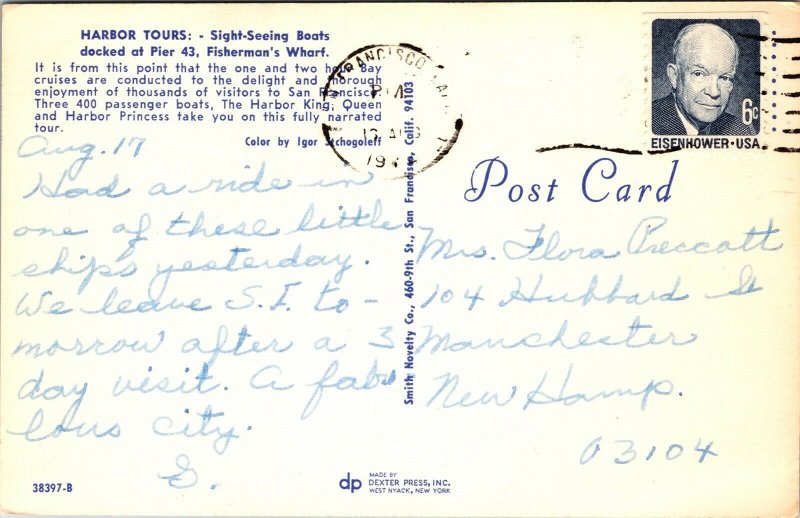 HARBOR TOURS: - Sight-Seeing Boats
docked at Pier 43, Fisherman's Wharf.
It is from this point that the one and two hour Bay
cruises are conducted to the delight and thorough
enjoyment of thousands of visitors to San Francisco.
Three 400 passenger boats, The Harbor King, Queen
and Harbor Princess take you on this fully narrated
tour.
Color by Igor
Aug. 17
Had a ride in
one of these little
ships yesterday.
We leave S.F. to-
morrow after a 3
day visit. A fabu
lous city.
G.
38397-B
Smith Novelty Co., 460-9th St., San Francisco, Calif. 94103
dp
MADE BY
DEXTER PRESS, INC.
WEST NYACK, NEW YORK
FRANCISCO
PM
6c
EISENHOWER·USA
Post Card
Mrs. Flora Prescott
104 Hubbard St
Manchester
New Hamp.
03104